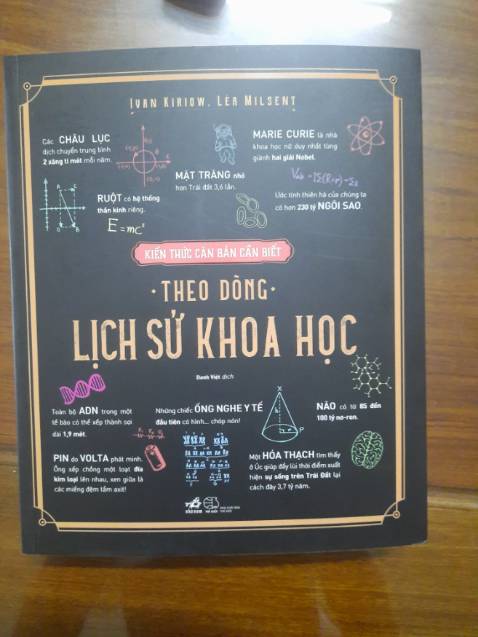 IVAN KIRIOW, LÉA MILSENT
Các CHÂU LỤC
dịch chuyển trung bình
2 xăng ti mét mỗi năm.
MARIE CURIE là nhà
khoa học nữ duy nhất từng
giành hai giải Nobel.
MẶT TRĂNG nhỏ
hơn Trái đất 3,6 lần.
RUỘT có hệ thống
thần kinh riêng.
E = mc²
Ước tính thiên hà của chúng ta
có hơn 230 tỷ NGÔI SAO.
KIẾN THỨC CĂN BẢN CẦN BIẾT
• THEO DÒNG •
LỊCH SỬ KHOA HỌC
Danh Việt dịch
Toàn bộ ADN trong một
tế bào có thể xếp thành sợi
dài 1,9 mét.
Những chiếc ỐNG NGHE Y TẾ
đầu tiên có hình... chóp nón!
NÃO có từ 85 đến
100 tỷ nơ-ron.
PIN do VOLTA phát minh.
Ông xếp chồng một loạt đĩa
kim loại lên nhau, xen giữa là
các miếng đệm tẩm axit!
Một HÓA THẠCH tìm thấy
ở Úc giúp đẩy lùi thời điểm xuất
hiện sự sống trên Trái Đất lại
cách đây 3,7 tỷ năm.